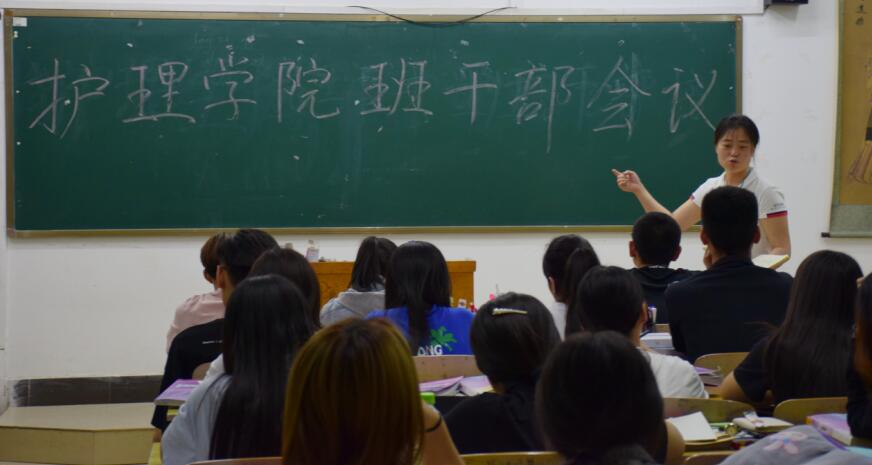 护理学院班干部会议
ANG